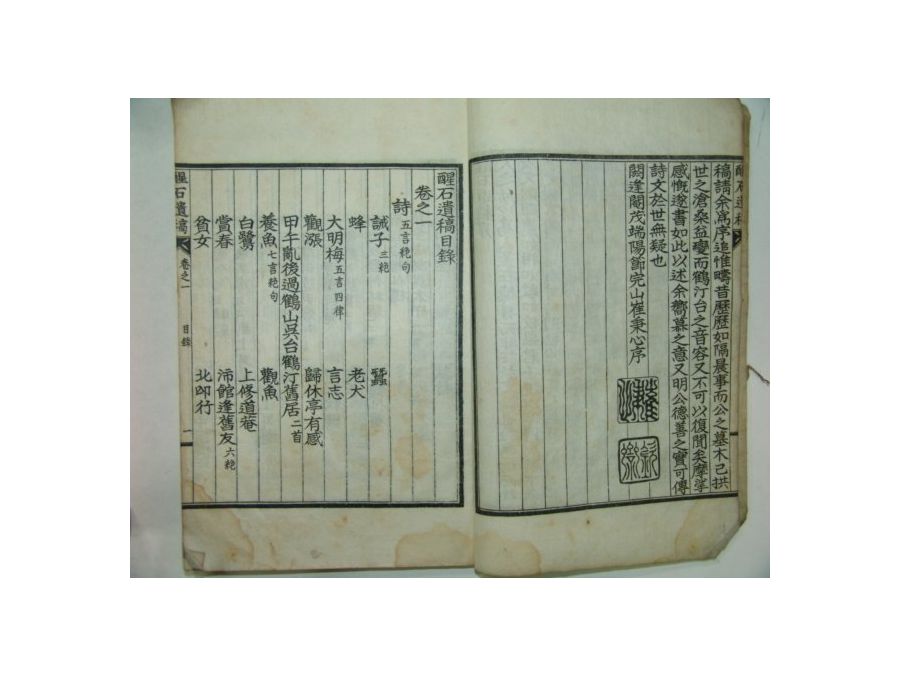 稿請余爲序追惟疇昔歷歷如隔晨事而公之墓木已拱
世之滄桑益變而鶴汀台之音容又不可以復聞矣摩挲
感慨遂書如此以述余嚮慕之意又明公德善之實可傳
詩文於世無疑也
閼逢閹茂端陽節完山崔秉心序
醒石遺稿目錄
卷之一
詩 五言絶句
誡子 三絶 蠶
蜂 老犬
大明梅 五言四律 言志
觀漲 歸休亭有感
甲午亂後過鶴山吳台鶴汀舊居 二首
養魚 七言絶句 觀魚
白鷺 上修道菴
賞春 沛館逢舊友 六絶
貧女 北邙行
醒石遺稿 卷之一 目錄 一